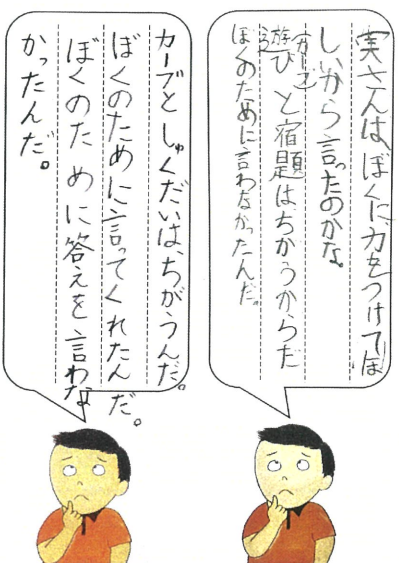 実さんは、ぼくに、力をつけてほ
しいから言ったのかな。
カーブ
遊び と宿題はちがうからだ
ぼくのために言わなかったんだ。
カーブと しゅくだいは、ちがうんだ。
ぼくのために言ってくれたんだ。
ぼくのた めに答えを言わな
かったんだ。